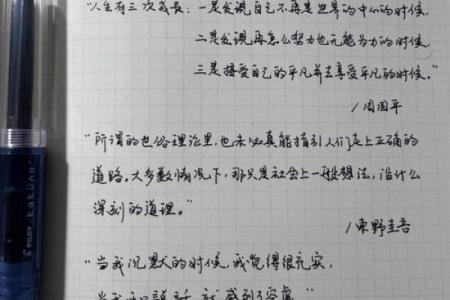 "人生有三次成长：一是发现自己不再是世界的中心的时候.
二是发现再怎么努力也无能为力的时候.
三是接受自己的平凡并去享受平凡的时候."
/周国平
"所谓的世俗理论里，也未必真能指引人们走上正确的
道路。大多数情况下，那只是社会上一般想法，没什么
深刻的道理。"
/東野圭吾
"当我沉默的时候，我觉得很充实，
当我开口说话，就感到了空虚"
PILOT kaküno